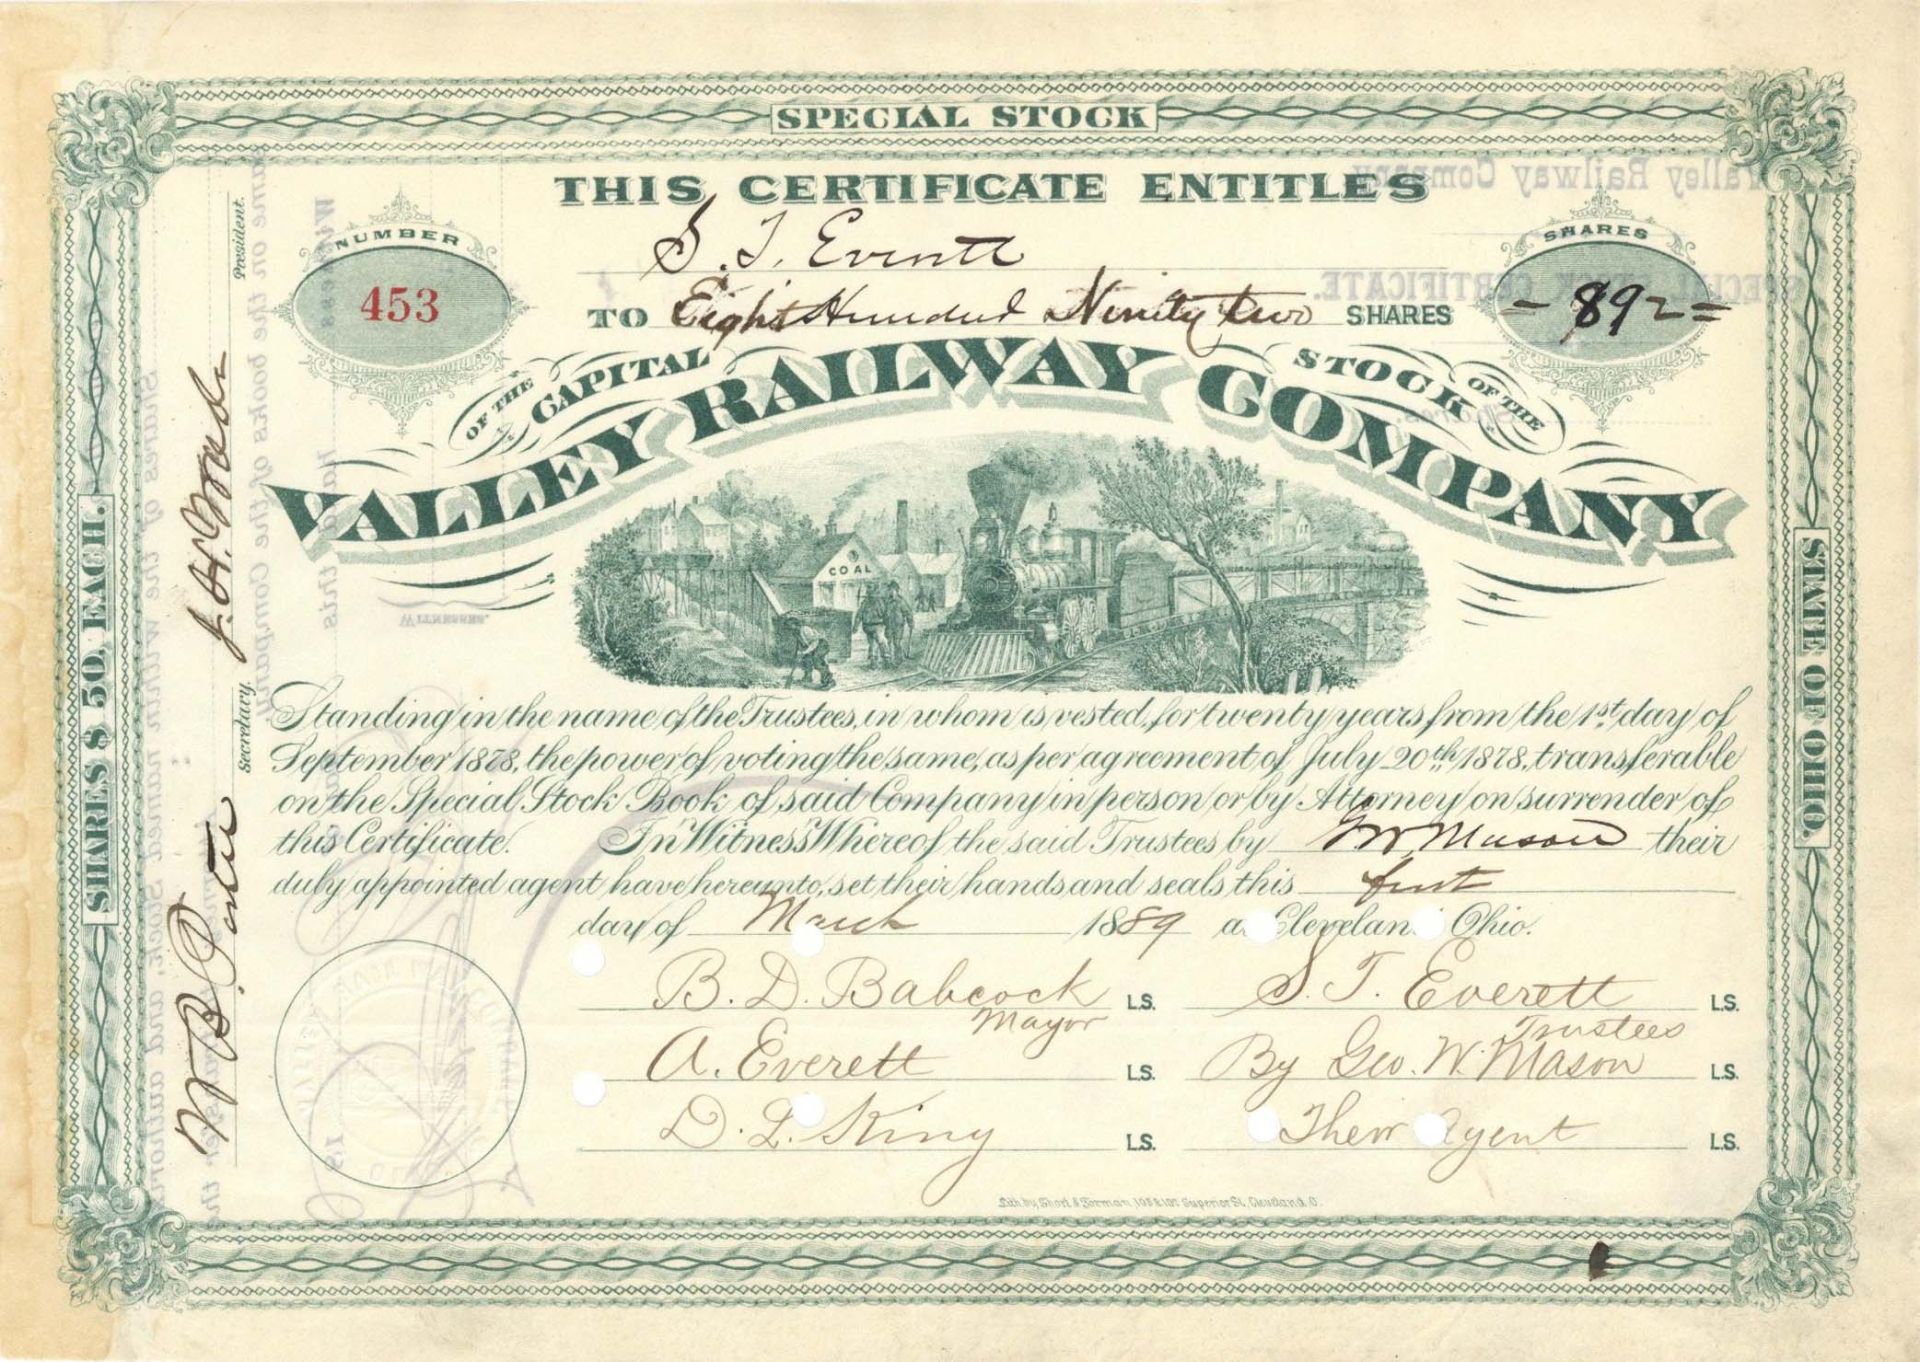 SPECIAL STOCK
THIS CERTIFICATE ENTITLES
NUMBER
453
S. T. Everett
SHARES
- 892 =
TO Eight Hundred Ninety two SHARES
OF THE CAPITAL STOCK OF THE
VALLEY RAILWAY COMPANY
COAL
Standing in the name of the Trustees, in whom is vested, for twenty years from the 1st. day of
September 1878, the power of voting the same, as per agreement of July 20th. 1878, transferable
on the Special Stock Book of said Company in person or by Attorney on surrender of
this Certificate. In Witness Whereof the said Trustees by Geo W Mason their
duly appointed agent have hereunto, set their hands and seals this first
day of March 1889 at Cleveland Ohio.
B. D. Babcock L.S.
Mayor
S. T. Everett L.S.
Trustees
A. Everett L.S.
By Geo. W. Mason L.S.
D. L. King L.S.
Their Agent L.S.
Lith. by Short & Forman, Superior St., Cleveland, O.
SHARES $50. EACH.
STATE OF OHIO.
President.
Secretary.
Valley Railway Company
SPECIAL STOCK CERTIFICATE.
WITNESSES.
Shares of the within named Stock, and
name on the books of the Company